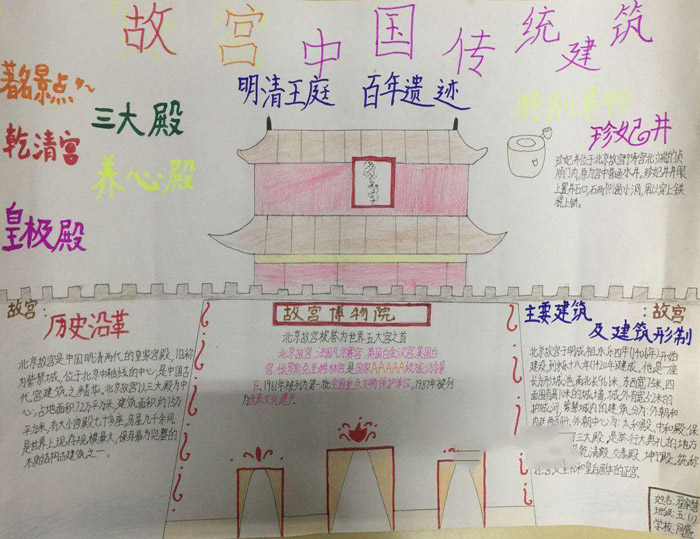 故宫中国传统建筑
明清王庭 百年遗迹
著名景点
三大殿
乾清宫
养心殿
皇极殿
特别景物
珍妃井
珍妃井位于北京故宫博物院北
顺门内,原为宫中普通水井,珍妃井井眼
上置井石口,石两侧凿小洞,用以穿上铁
棍上锁。
故宫:
历史沿革
北京故宫是中国明清两代的皇家宫殿,旧称
为紫禁城,位于北京中轴线的中心,是中国古
代宫建筑之精华。北京故宫以三大殿为中
心,占地面积72万平方米,建筑面积约15万
平方米,有大小宫殿七十多座,房屋九千余间,
是世界上现存规模最大,保存最为完整的
木质结构古建筑之一。
故宫博物院
北京故宫被誉为世界五大宫之首
北京故宫、法国凡尔赛宫、英国白金汉宫、美国白
宫、俄罗斯克里姆林宫)是国家AAAAA级旅游景
区,1961年被列为第一批全国重点文物保护单位,1987年被列
为世界文化遗产
故宫
主要建筑
及建筑形制
北京故宫于明成祖永乐四年(1406年)开始
建设,到永乐十八年(1420年)建成。他是一座
长方形城池,南北长961米,东西宽753米,四
面围有高10米的城墙,城外有宽52米的
护城河。紫禁城内的建筑分为外朝和
内廷两部分。外朝中心为:太和殿、中和殿、保
三大殿,是举行大典礼的地方
乾清殿、交泰殿、坤宁殿,统称
和皇后居住的正宫。
姓名:
班级:五(1)
学校: